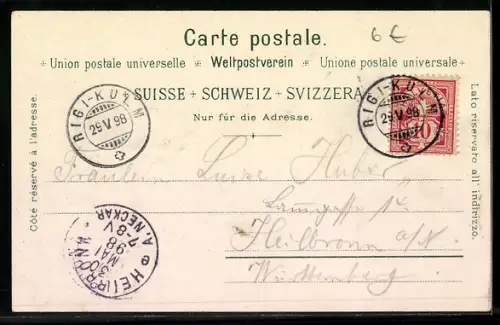 Carte postale.
6 €
Union postale universelle + Weltpostverein + Unione postale universale
SUISSE + SCHWEIZ + SVIZZERA
Nur für die Adresse.
Côte réservé à l'adresse.
Lato riservato all' indirizzo.
RIGI-KULM
29 V 98
RIGI-KULM
29 V 98
10
Fräulein Luise Huber
Heilbronn a/N.
Württemberg
HEILBRONN
A. NECKAR
7-8 V
98
MAI
30